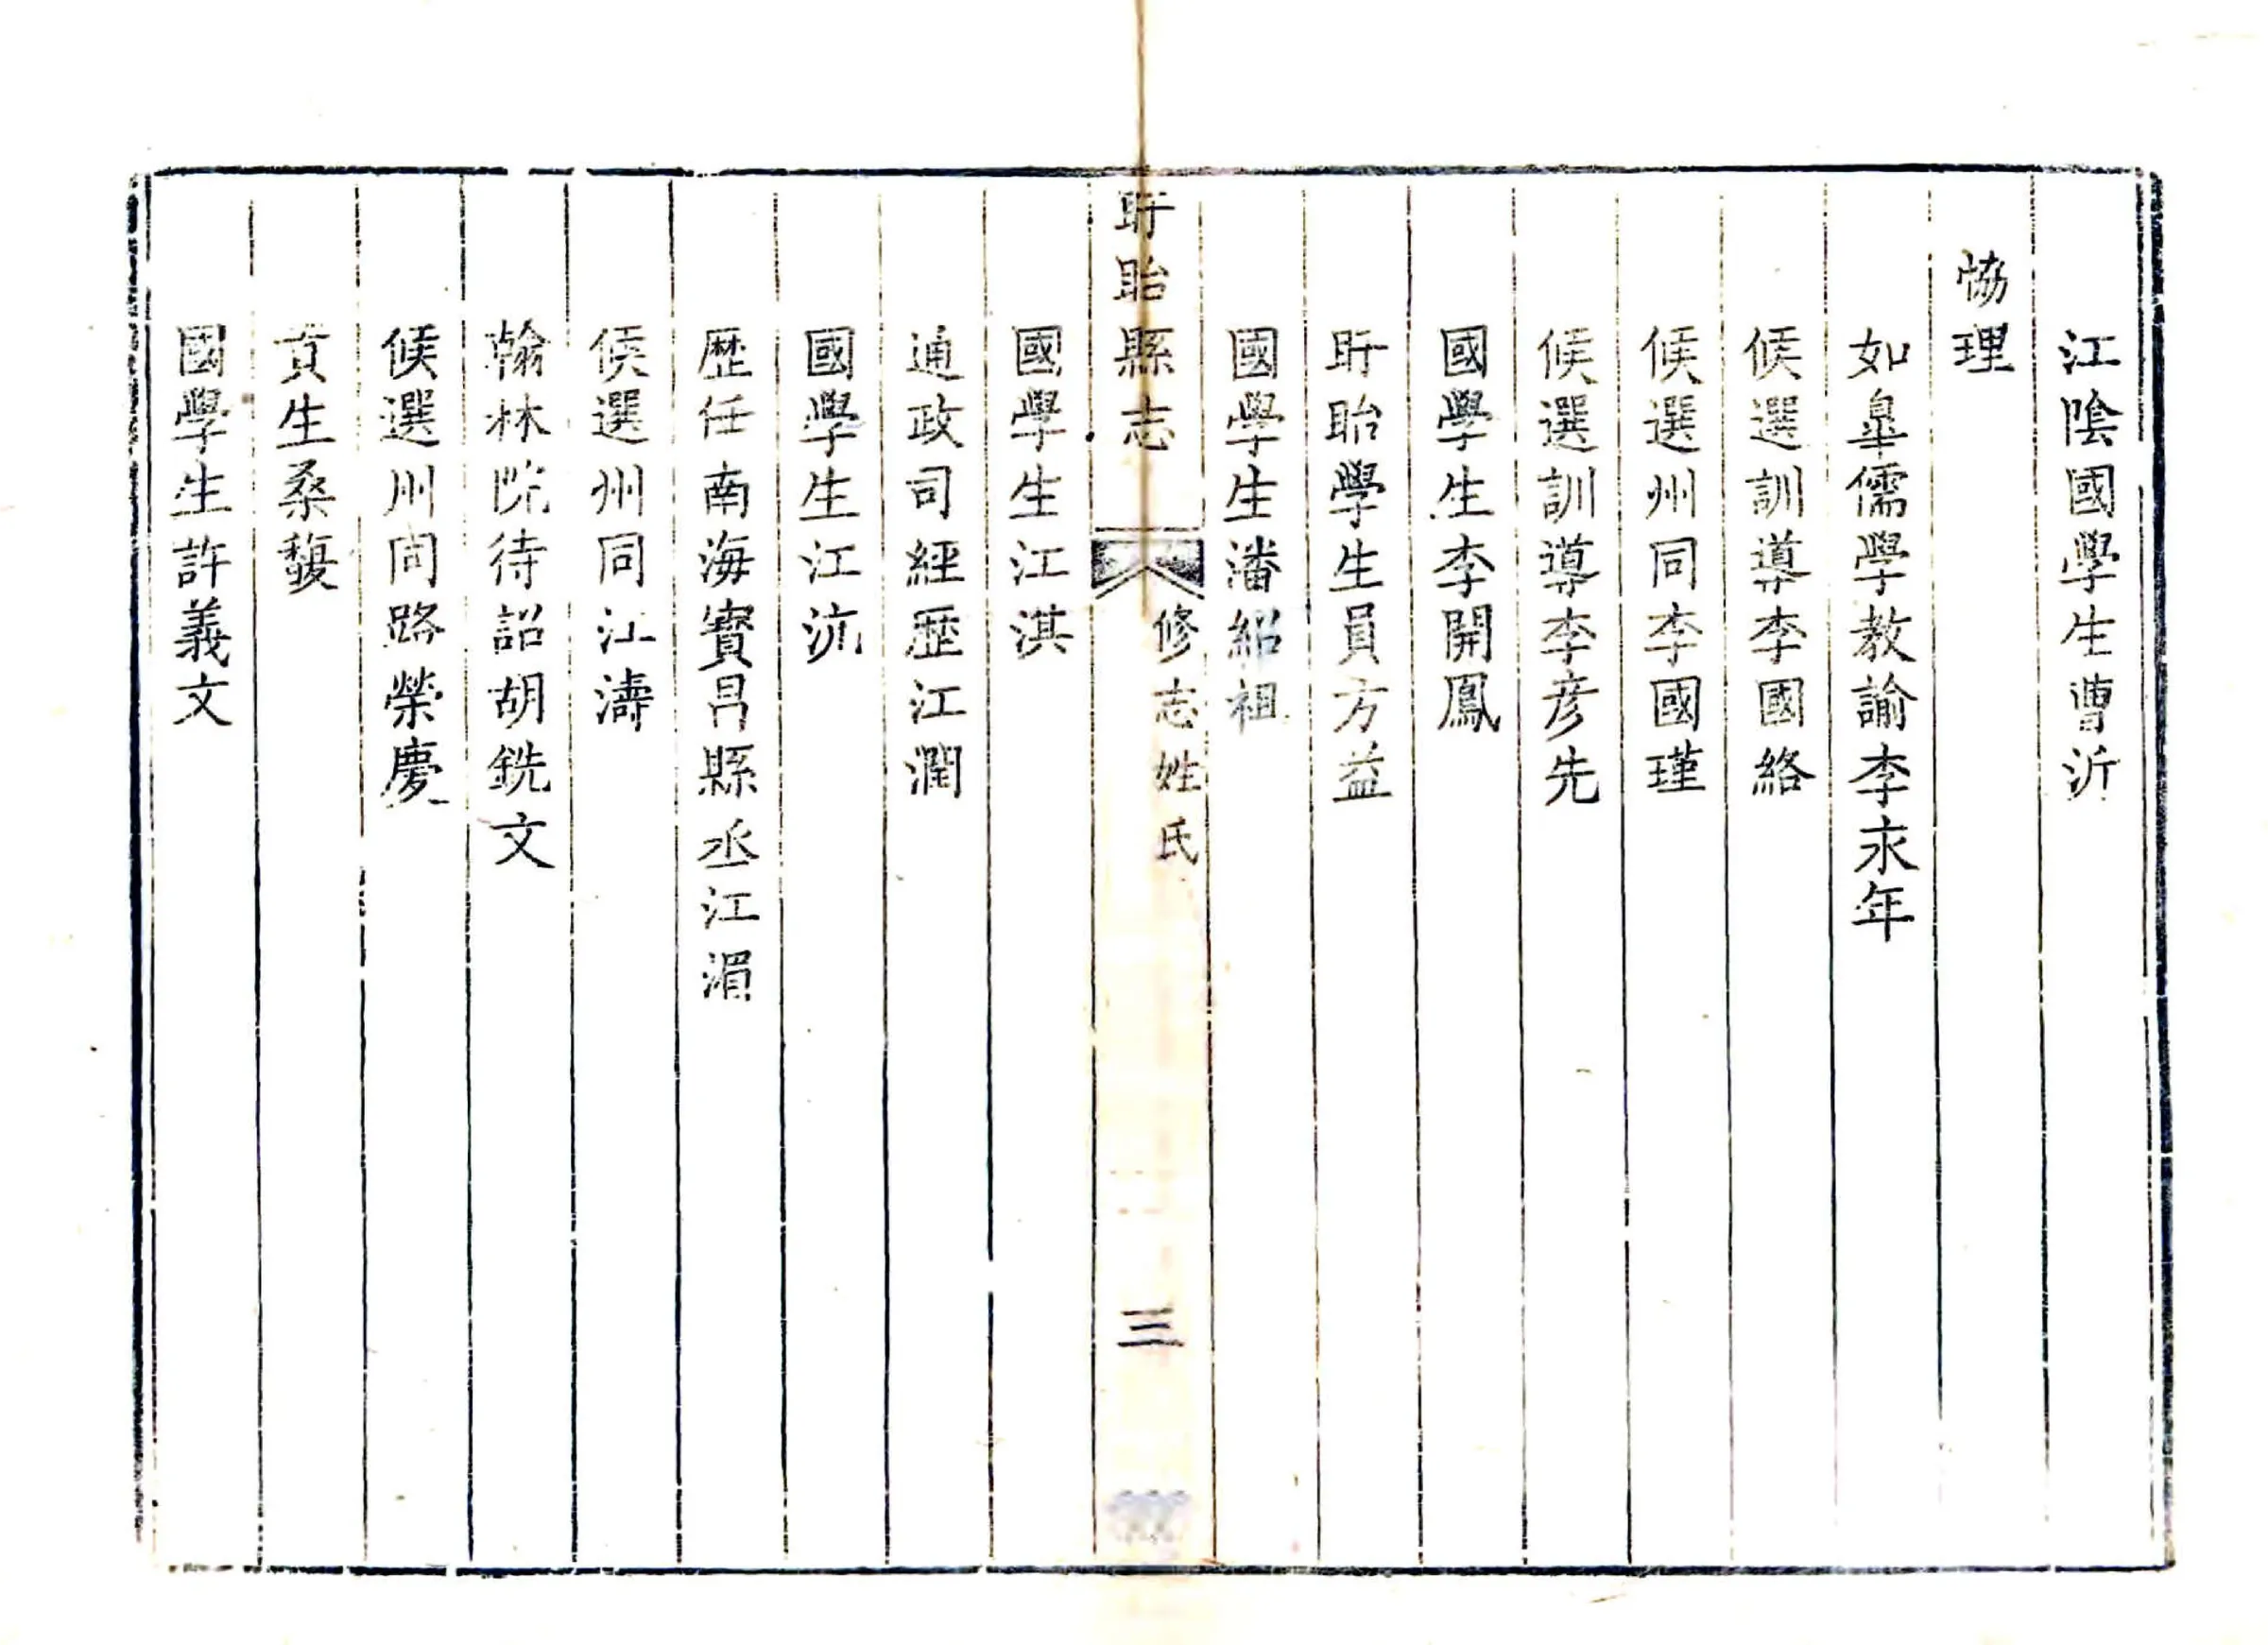 江陰國學生曹沂
恊理
如臯儒學教諭李永年
候選訓導李國絡
候選州同李國瑾
候選訓導李彦先
國學生李開鳳
盱眙學生員方益
國學生潘紹祖
盱眙縣志
修志姓氏
三
國學生江淇
通政司經歷江潤
國學生江沆
歴任南海寳昌縣丞江湄
候選州同江濤
翰林院待詔胡銑文
候選州同路榮慶
貢生桑馥
國學生許義文